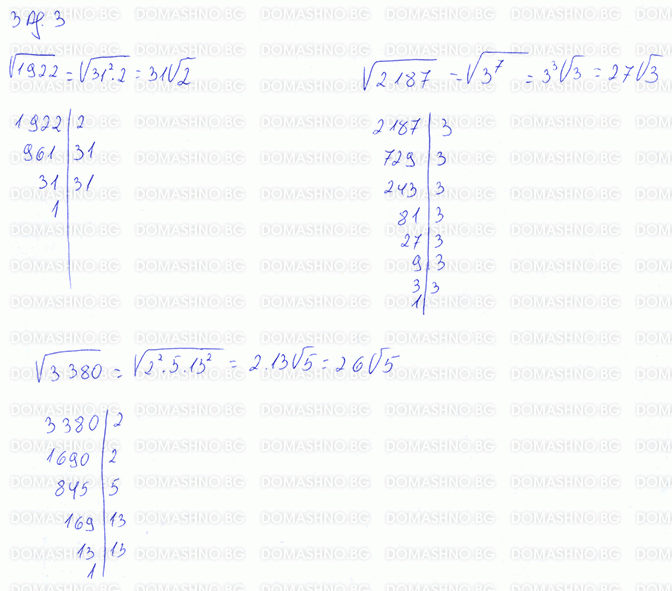 3 задg. 3
√1922 = √31².2 = 31√2
1922 | 2
961 | 31
31 | 31
1
√2187 = √3⁷ = 3³√3 = 27√3
2187 | 3
729 | 3
243 | 3
81 | 3
27 | 3
9 | 3
3 | 3
1
√3380 = √2².5.13² = 2.13√5 = 26√5
3380 | 2
1690 | 2
845 | 5
169 | 13
13 | 13
1
DOMASHNO.BG